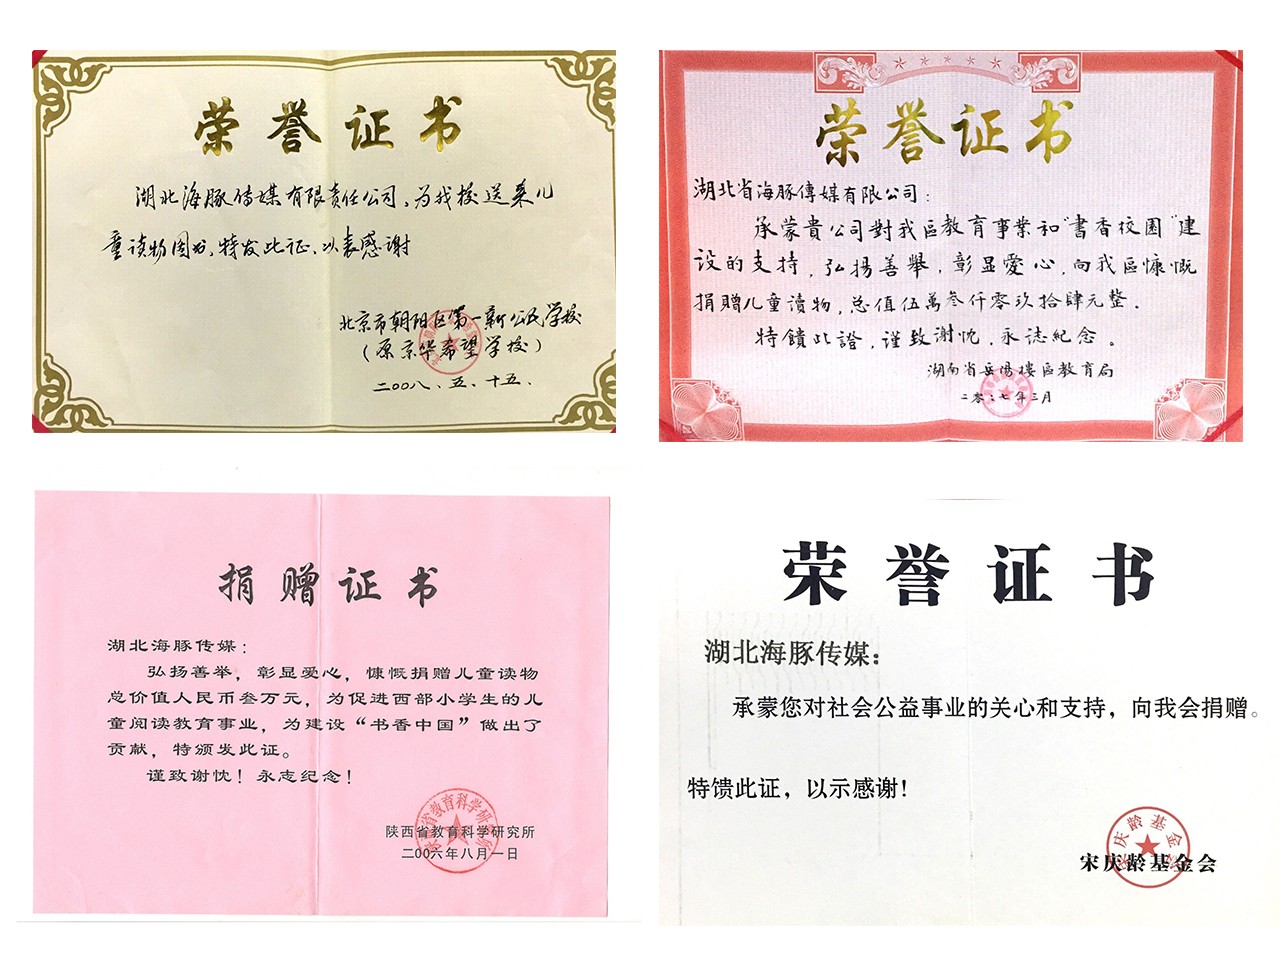 荣誉证书
湖北海豚传媒有限责任公司、为我校送来儿
童读物图书,特发此证、以表感谢
北京市朝阳区第一新公民学校
(原京华希望学校)
二00八、五、十五、
荣誉证书
湖北省海豚傳媒有限公司：
承蒙貴公司對我區教育事業和“書香校園”建
设的支持，弘揚善舉，彰显愛心，向我區慷慨
捐贈儿童读物，总值伍萬叁仟零玖拾肆元整。
特饋此證，谨致谢忱，永誌紀念。
湖南省岳陽樓區教育局
年三月
捐赠证书
湖北海豚传媒：
弘扬善举，彰显爱心，慷慨捐赠儿童读物
总价值人民币叁万元，为促进西部小学生的儿
童阅读教育事业，为建设“书香中国”做出了
贡献，特颁发此证。
谨致谢忱！永志纪念！
陕西省教育科学研究所
二00六年八月一日
荣誉证书
湖北海豚传媒：
承蒙您对社会公益事业的关心和支持，向我会捐赠。
特馈此证，以示感谢！
宋庆龄基金会